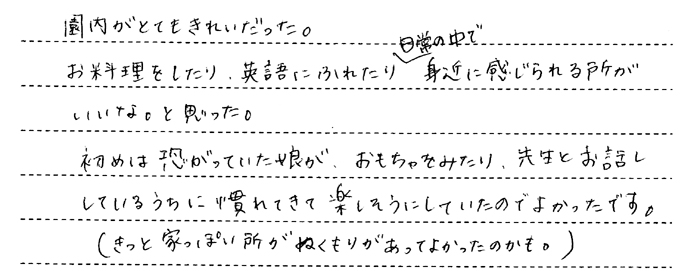 園内がとてもきれいだった。
日常の中で
お料理をしたり、英語にふれたり 身近に感じられる所が
いいな。と思った。
初めは恐がっていた娘が、おもちゃをみたり、先生とお話し
しているうちに慣れてきて楽しそうにしていたのでよかったです。
(きっと家っぽい所がぬくもりがあってよかったのかも。)